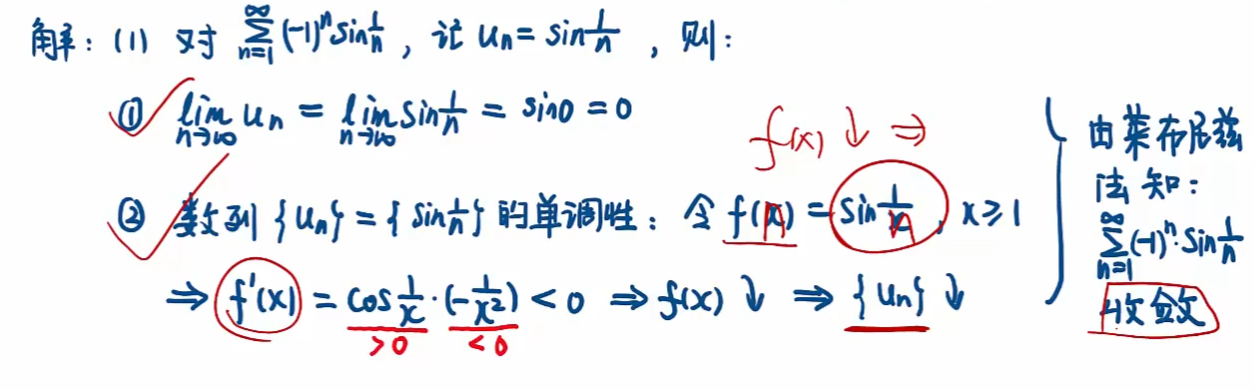 解：(1) 对 $\sum_{n=1}^{\infty}(-1)^n \sin\frac{1}{n}$，记 $u_n = \sin\frac{1}{n}$，则：
① $\lim_{n\to\infty} u_n = \lim_{n\to\infty} \sin\frac{1}{n} = \sin 0 = 0$
f(x) ↓ ⇒
② 数列 $\{u_n\} = \{\sin\frac{1}{n}\}$ 的单调性：令 $f(x) = \sin\frac{1}{x}$，$x \geq 1$
n n
⇒ $f'(x) = \cos\frac{1}{x} \cdot (-\frac{1}{x^2}) < 0$ ⇒ f(x) ↓ ⇒ $\{u_n\}$ ↓
>0 <0
由莱布尼兹
法知：
$\sum_{n=1}^{\infty}(-1)^n \cdot \sin\frac{1}{n}$
收敛